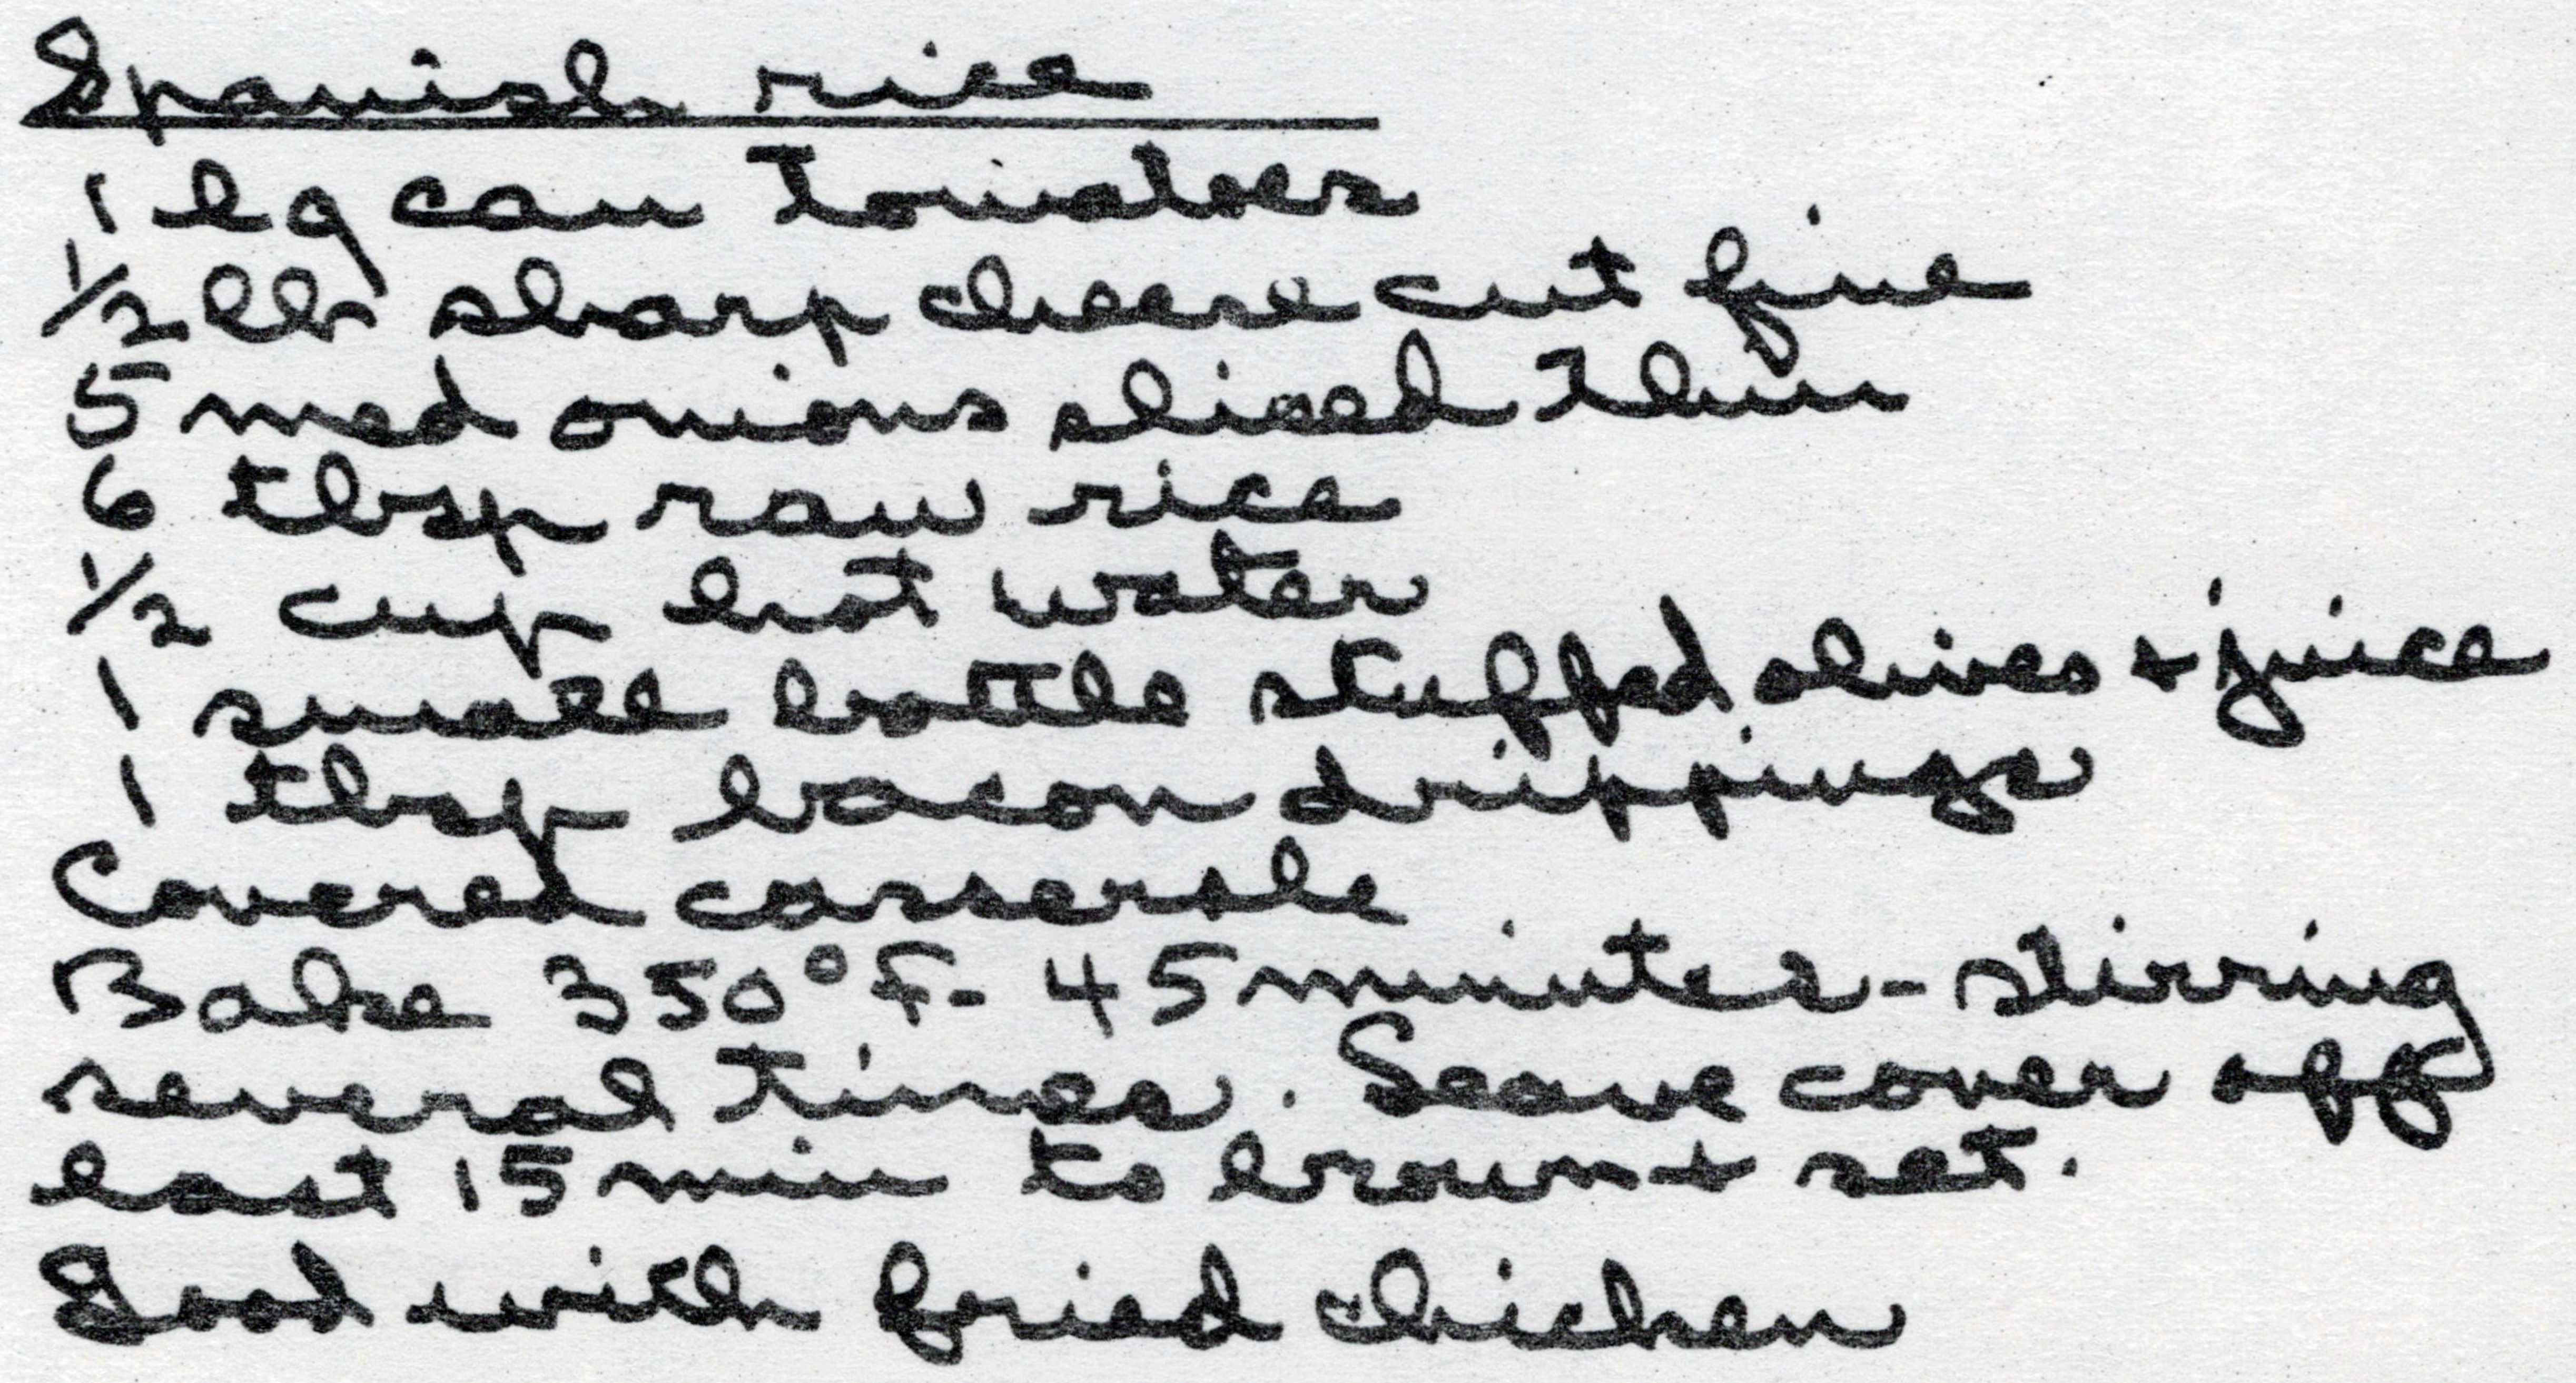 Spanish rice
1 lg can tomatoes
1/2 lb sharp cheese cut fine
5 med onions sliced thin
6 tbsp raw rice
1/2 cup hot water
1 small bottle stuffed olives + juice
1 tbsp bacon drippings
Covered casserole
Bake 350°F - 45 minutes - stirring
several times. Leave cover off
last 15 min to brown + set.
Good with fried chicken